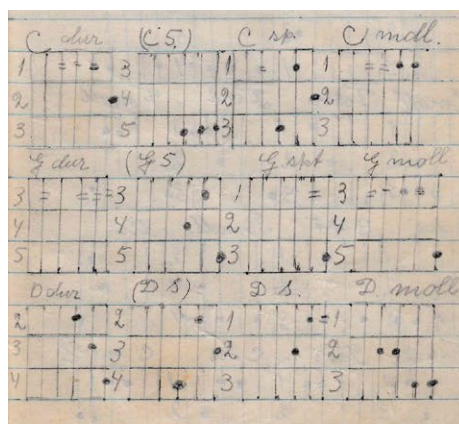 C dur (C 5.) C sp. C moll.
1 3 1 1
2 4 2 2
3 5 3 3
G dur (G 5) G spt G moll
3 3 1 3
4 4 2 4
5 5 3 5
D dur (D 5) D s. D moll
2 2 1 1
3 3 2 2
4 4 3 3